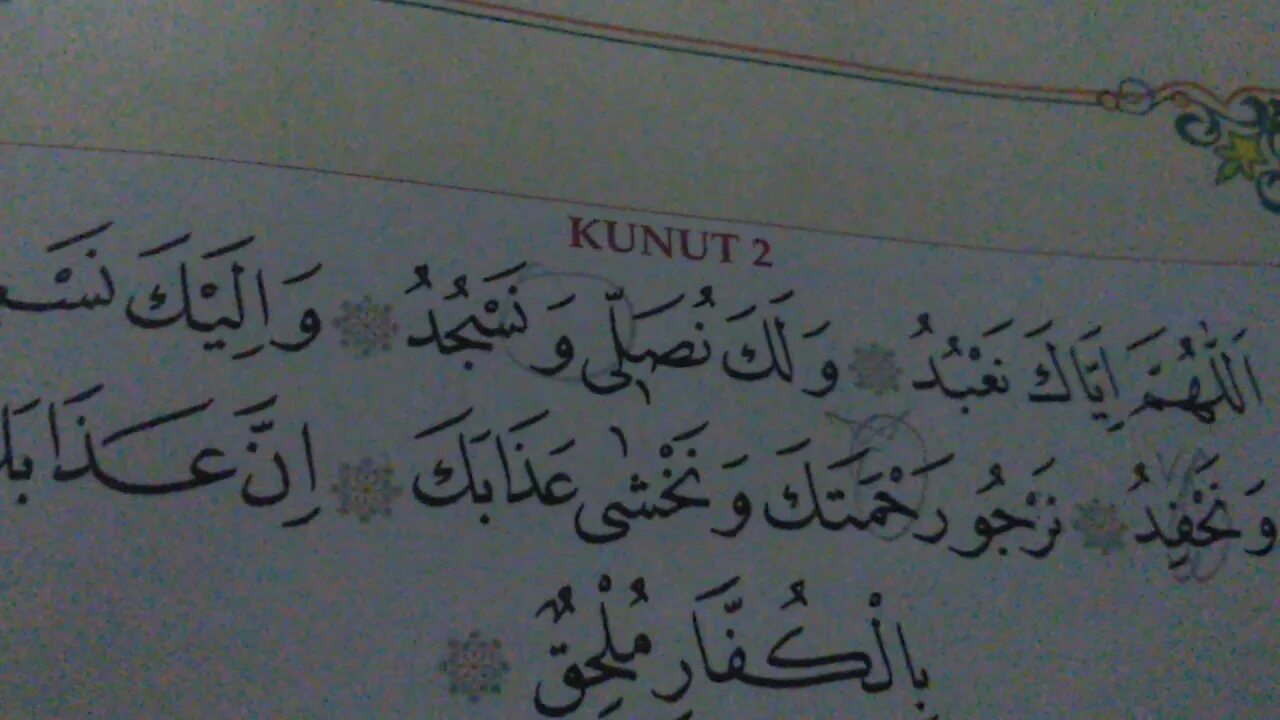 KUNUT 2
اَللّٰهُمَّ اِيَّاكَ نَعْبُدُ ۞ وَلَكَ نُصَلّٖى وَنَسْجُدُ ۞ وَاِلَيْكَ
وَنَحْفِدُ ۞ نَرْجُو رَحْمَتَكَ وَنَخْشٰى عَذَابَكَ ۞ اِنَّ عَذَابَكَ
بِالْكُفَّارِ مُلْحِقٌ ۞